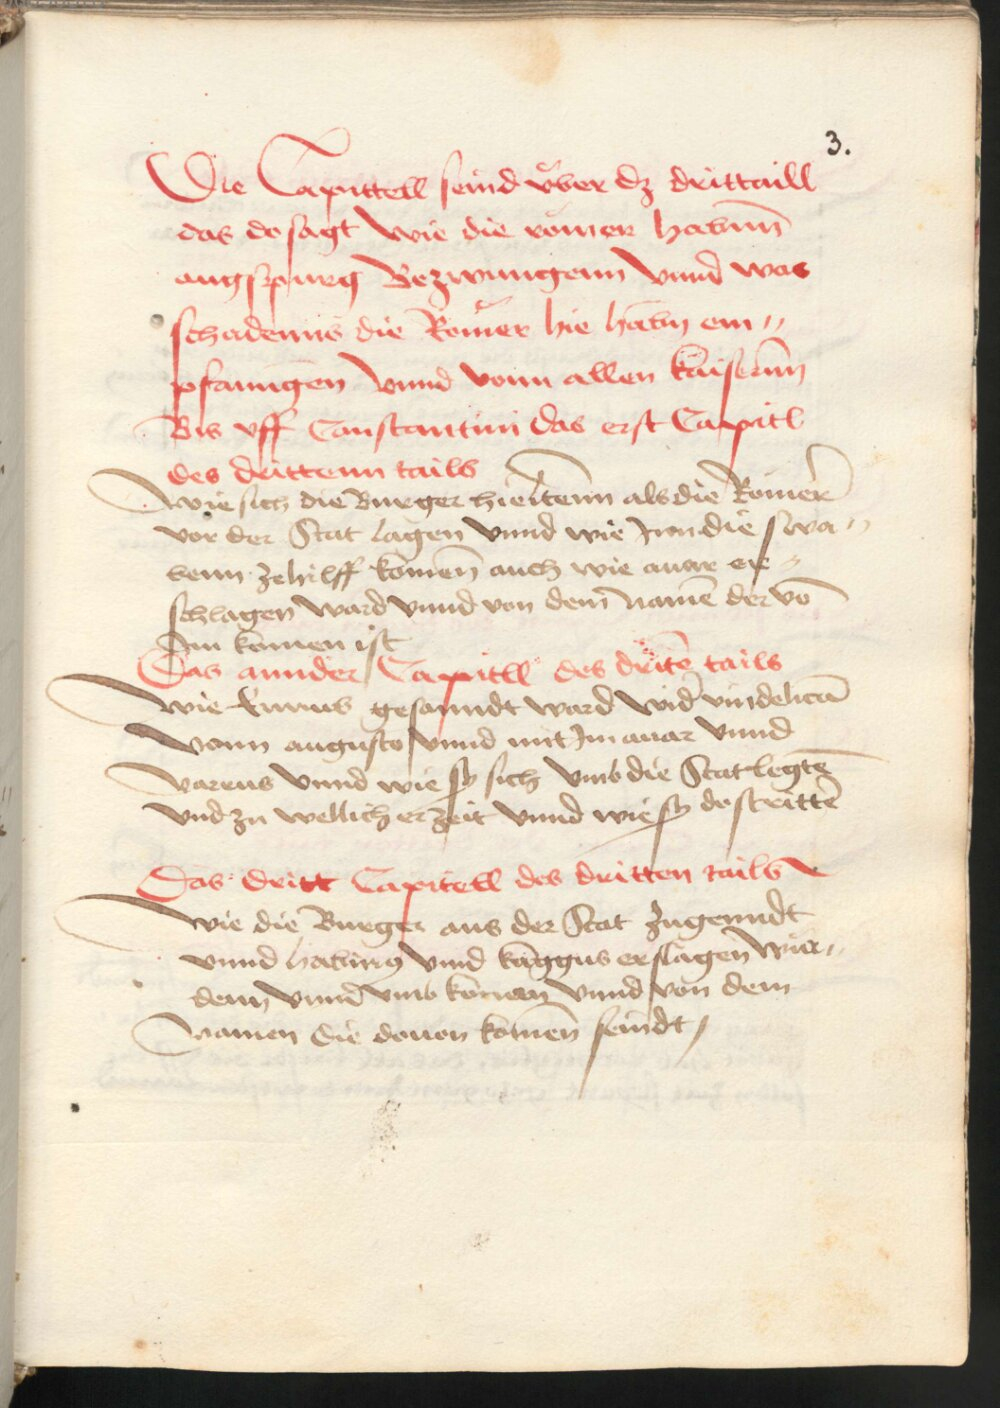 3.
Die Capittell seind vͤber dz drittaill
das do sagt wie die römer habenn̄
augspurg Bezwungenn Vnnd was
schadenns die Römer hie habn̄ em〃
pfanngen Vnnd vonn allen kaiserñn
Bis vff Constantinn das erst Capitl
des drittenn tails
Wie sich die Burger hieltenn als die Römer
vor der Stat lagen Vnnd wie Inn die swa〃
benn zehilff komen̄ auch wie auar er〃
schlagen ward vnnd von dem namē der vō
Im komen ist
Das annder Capitll des dritē tails
Wie gesanndt ward wid vindelicā
Vonn augusto Vnnd mit Im auar Vnnd
Varrus Vnnd wie sy sich Vmb die Stat legtē
Vnd zu wellicher zeit Vnnd wie sy do strittē
Das dritt Capitell des dritten tails
Wie die Burger aus der Stat
vnnd habino Vnnd erslagen wur〃
denn Vnnd Vmb komen Vnnd von dem
Namen die douon komen̄ seindt